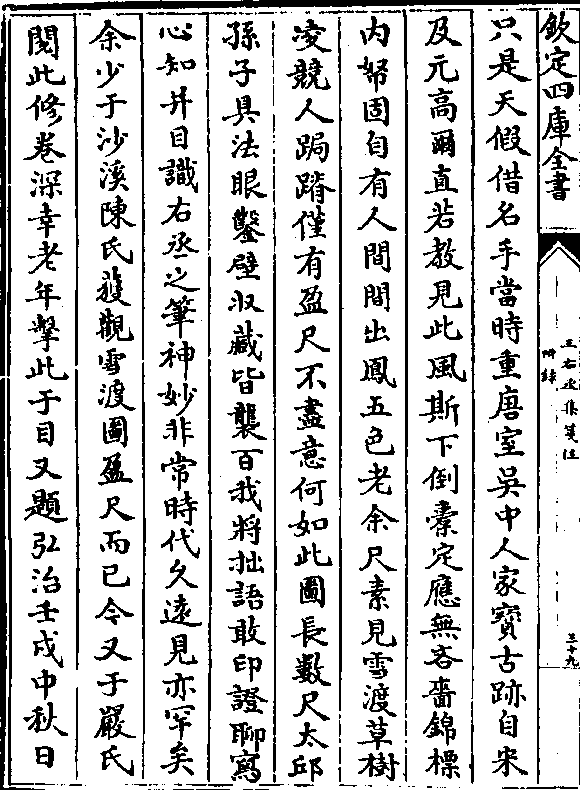 欽定四庫全書
王右丞集箋注
附錄
三十九
只是天假借名手當時重唐室吳中人家寶古跡自宋
及元高爾直若教見此風斯下倒橐定應無吝嗇錦標
内帑固自有人間間出鳳五色老余尺素見雪渡草樹
凌競人跼蹐僅有盈尺不盡意何如此圖長數尺太邱
孫子具法眼鑿壁収藏皆襲百我將拙語敢印證聊寫
心知并目識右丞之筆神妙非常時代久遠見亦罕矣
余少于沙溪陳氏獲觀雪渡圖盈尺而已今又于嚴氏
閱此修卷深幸老年擊此于目又題弘治壬戌中秋日